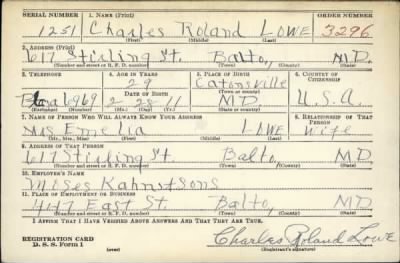 SERIAL NUMBER 1. NAME (Print) ORDER NUMBER
1251 Charles Roland LOWE 3296
(First) (Middle) (Last)
2. ADDRESS (Print)
617 Stirling St. Balto, MD.
(Number and street or R. F. D. number) (Town) (County) (State)
3. TELEPHONE 4. AGE IN YEARS 5. PLACE OF BIRTH 6. COUNTRY OF CITIZENSHIP
29 Catonsville
(Town or county)
6969 2 28 11 MD U.S.A.
(Exchange) (Number) (Mo.) (Day) (Yr.) (State or country)
7. NAME OF PERSON WHO WILL ALWAYS KNOW YOUR ADDRESS 8. RELATIONSHIP OF THAT PERSON
Mrs Emelia LOWE wife
(Mr., Mrs., Miss) (First) (Middle) (Last)
9. ADDRESS OF THAT PERSON
617 Stirling St. Balto, MD
(Number and street or R. F. D. number) (Town) (County) (State)
10. EMPLOYER'S NAME
Moses Kahn+sons
11. PLACE OF EMPLOYMENT OR BUSINESS
447 East St. Balto, MD
(Number and street or R. F. D. number) (Town) (County) (State)
I AFFIRM THAT I HAVE VERIFIED ABOVE ANSWERS AND THAT THEY ARE TRUE.
REGISTRATION CARD
D. S. S. Form 1 (over) Charles Roland Lowe
(Registrant's signature)